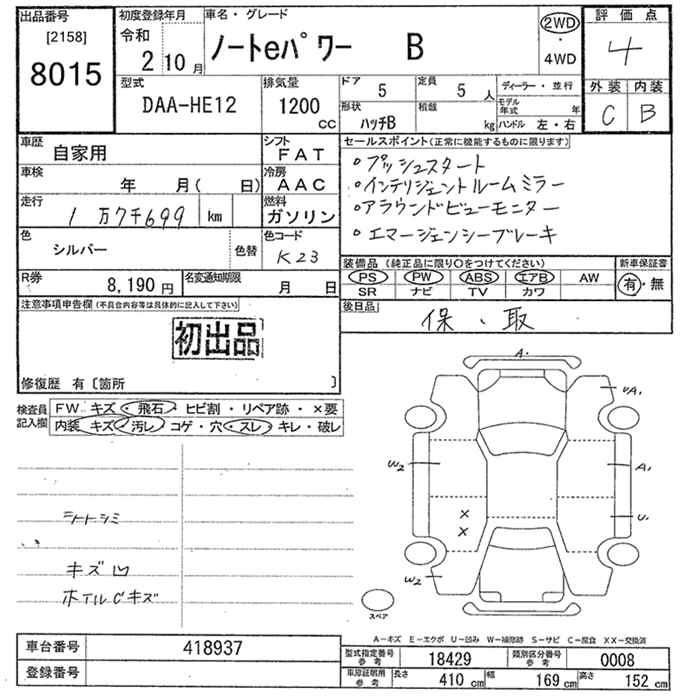 出品番号
[2158]
8015
初度登録年月
令和
2 10月
車名・グレード
ノートeパワー B
2WD
・
4WD
評価点
4
外装 内装
C B
型式
DAA-HE12
排気量
1200
CC
ドア
5
定員
5 人
形状
ハッチB
積載
kg
ディーラー・並行
モデル年式 年
ハンドル 左・右
車歴
自家用
シフト
FAT
車検
年 月( 日)
冷房
AAC
走行
1万7千699 km
燃料
ガソリン
色
シルバー
色替
色コード
K23
R券
8,190円
名変通知期限
月 日
セールスポイント(正常に機能するものに限ります)
・プッシュスタート
・インテリジェントルームミラー
・アラウンドビューモニター
・エマージェンシーブレーキ
装備品(純正品に限り○をつけてください)
PS PW ABS エアB AW
SR ナビ TV カワ
新車保証書
有・無
後日品
保、取
注意事項申告欄(不具合内容等は具体的に記入して下さい)
初出品
修復歴 有〔箇所 〕
検査員
記入欄
FW キズ・飛石・ヒビ割・リペア跡・×要
内装 キズ・汚レ・コゲ・穴・スレ・キレ・破レ
シートシミ
キズ凹
ホイルCキズ
A・
UA1
W2
A1
×
×
U1
W2
スペア
A-キズ E-エクボ U-凹み W-補修跡 S-サビ C-腐食 XX-交換済
車台番号
418937
登録番号
型式指定番号
参考
18429
類別区分番号
参考
0008
車庫証明用
参考
長さ
410 cm
幅
169 cm
高さ
152 cm